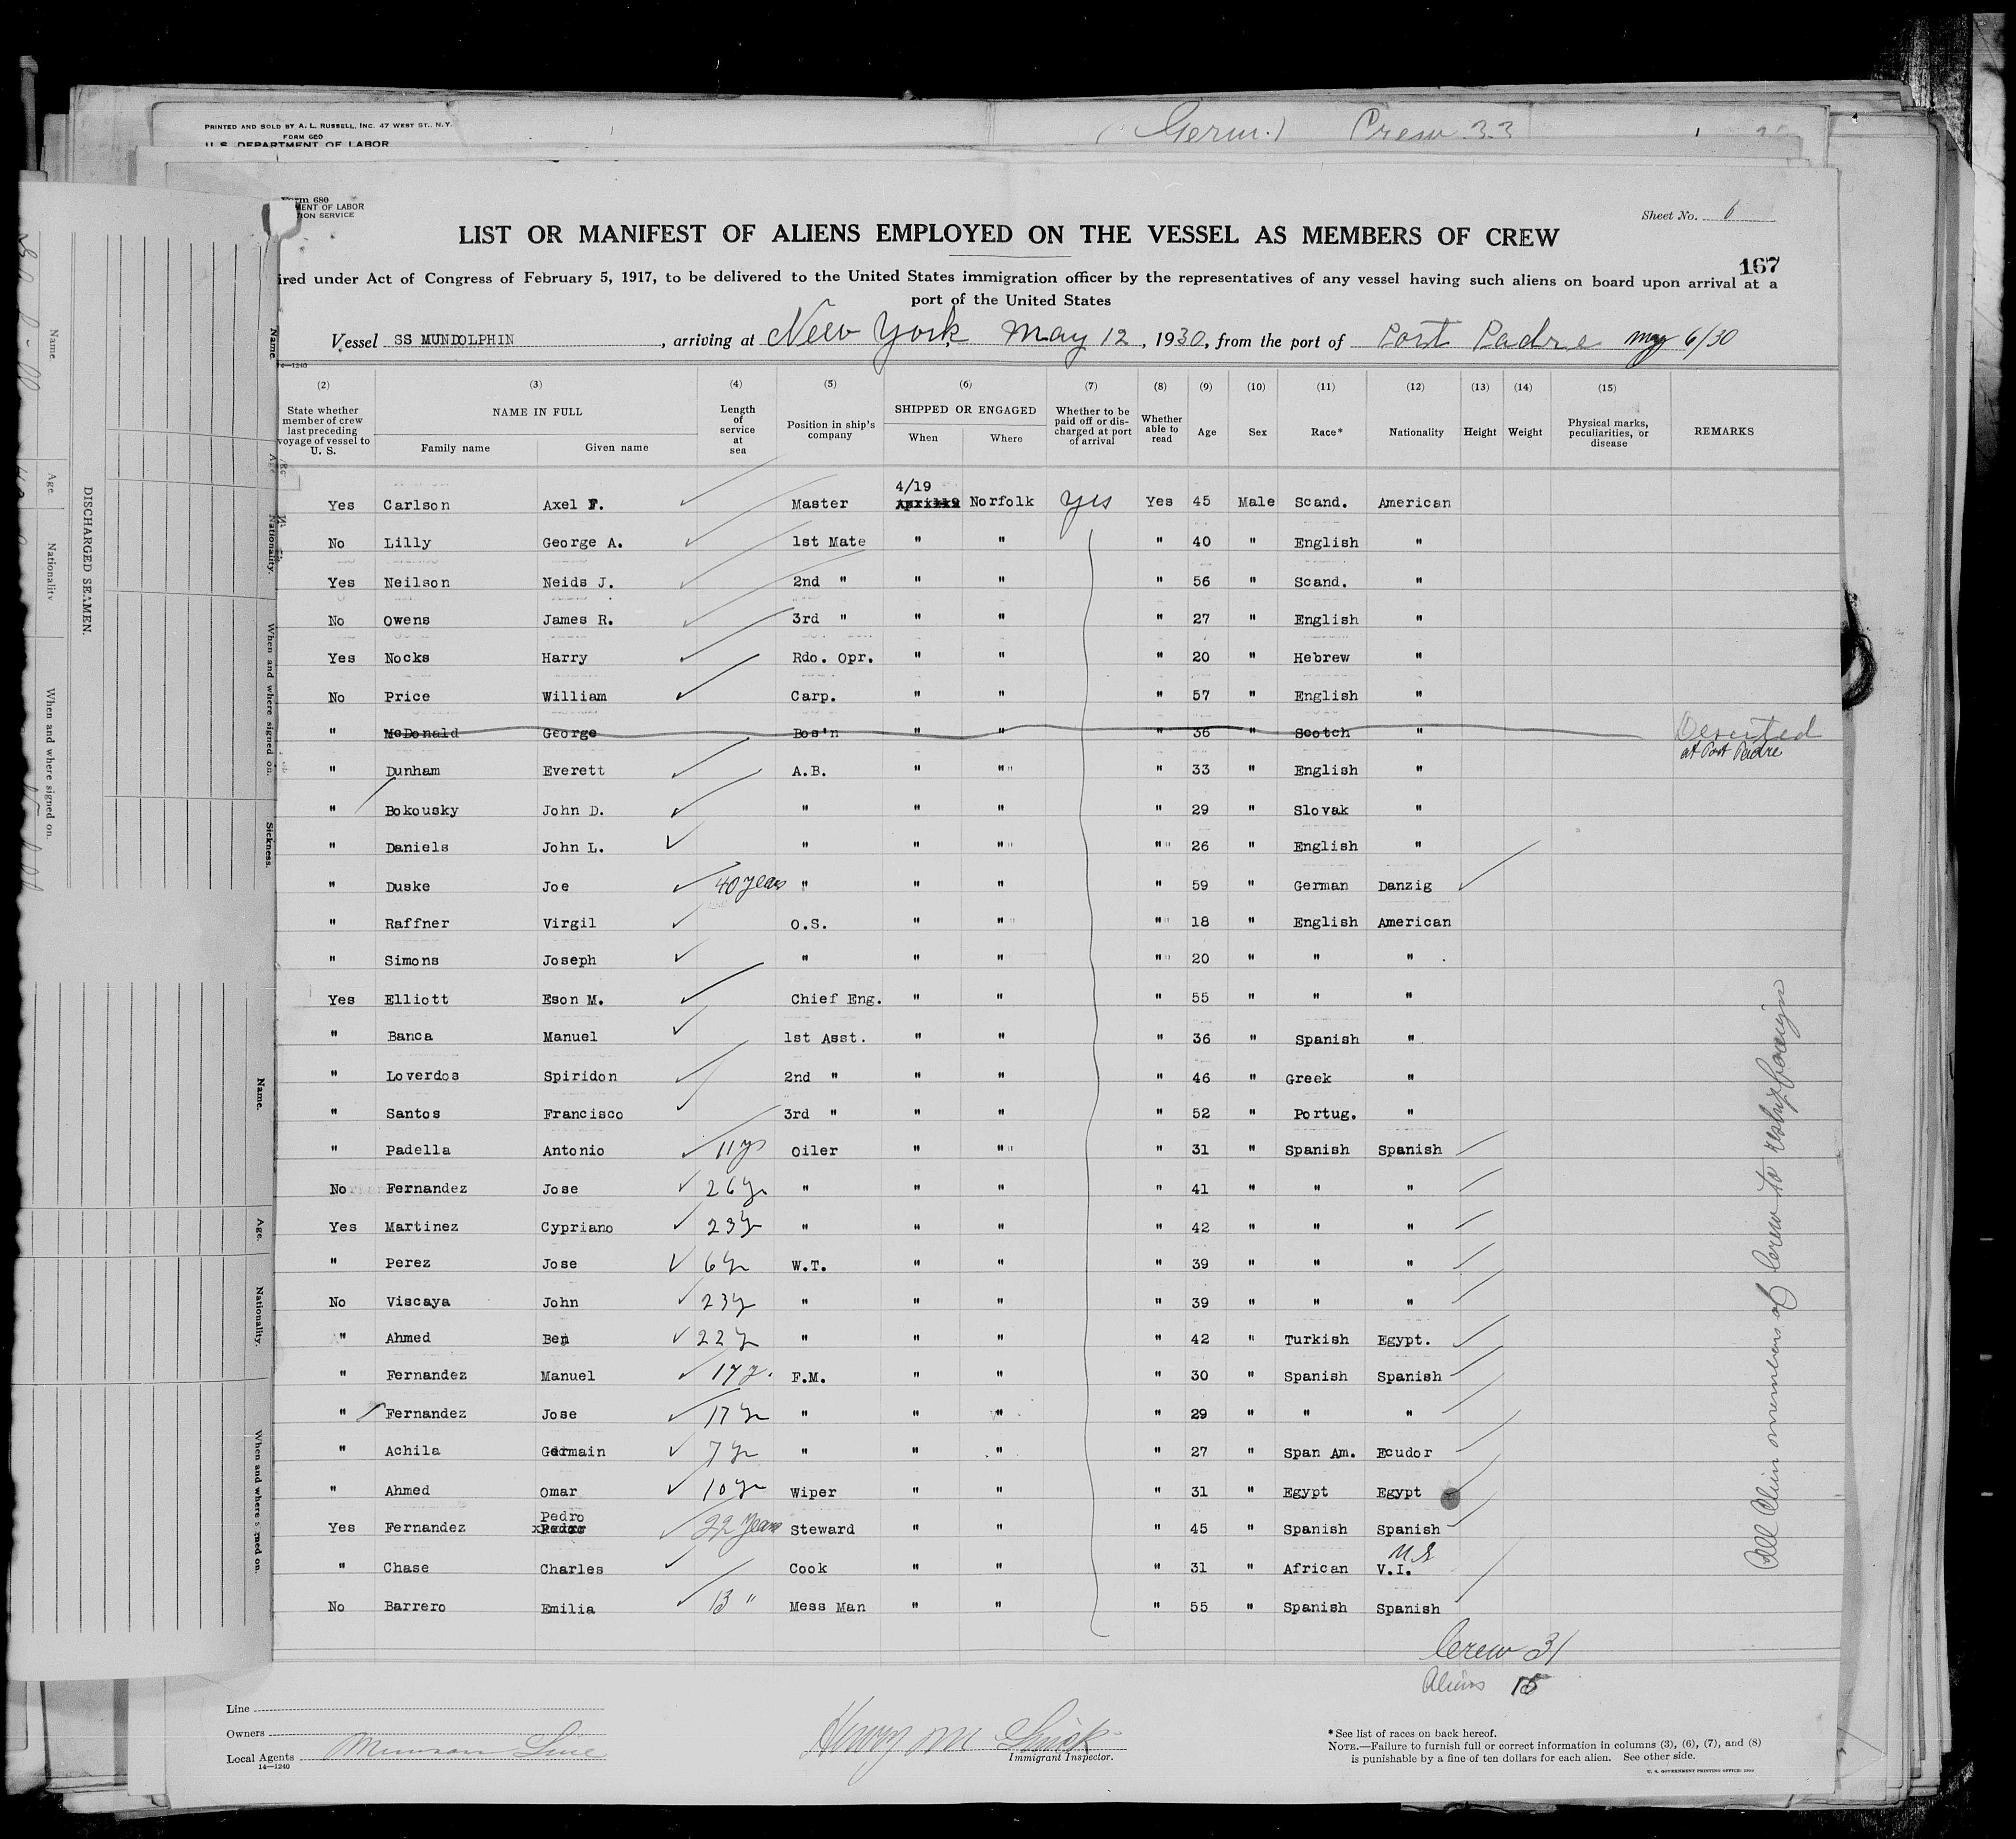 PRINTED AND SOLD BY A. L. RUSSELL, INC. 47 WEST ST., N.Y.
FORM 680
U. S. DEPARTMENT OF LABOR
(Germ.) Crew 33
Form 680
MENT OF LABOR
TION SERVICE
Sheet No. 6
LIST OR MANIFEST OF ALIENS EMPLOYED ON THE VESSEL AS MEMBERS OF CREW
167
ired under Act of Congress of February 5, 1917, to be delivered to the United States immigration officer by the representatives of any vessel having such aliens on board upon arrival at a
port of the United States
Vessel SS MUNDOLPHIN, arriving at New York May 12, 1930, from the port of Port Padre May 6/30
14—1240
(2) (3) (4) (5) (6) (7) (8) (9) (10) (11) (12) (13) (14) (15)
State whether member of crew last preceding voyage of vessel to U. S. NAME IN FULL Family name Given name Length of service at sea Position in ship's company SHIPPED OR ENGAGED When Where Whether to be paid off or discharged at port of arrival Whether able to read Age Sex Race* Nationality Height Weight Physical marks, peculiarities, or disease REMARKS
Yes Carlson Axel F. Master 4/19 Norfolk yes Yes 45 Male Scand. American
No Lilly George A. 1st Mate " " " 40 " English "
Yes Neilson Neids J. 2nd " " " " 56 " Scand. "
No Owens James R. 3rd " " " " 27 " English "
Yes Nocks Harry Rdo. Opr. " " " 20 " Hebrew "
No Price William Carp. " " " 57 " English "
" McDonald George Bos'n " " " 36 " Scotch " Deserted
at Port Padre
" Dunham Everett A.B. " " " 33 " English "
" Bokousky John D. " " " " 29 " Slovak "
" Daniels John L. " " " " 26 " English "
" Duske Joe 40 years " " " " 59 " German Danzig
" Raffner Virgil O.S. " " " 18 " English American
" Simons Joseph " " " " 20 " " "
Yes Elliott Eson M. Chief Eng. " " " 55 " " "
" Banca Manuel 1st Asst. " " " 36 " Spanish "
" Loverdos Spiridon 2nd " " " " 46 " Greek "
" Santos Francisco 3rd " " " " 52 " Portug. "
" Padella Antonio 11 y Oiler " " " 31 " Spanish Spanish
No Fernandez Jose 26 y " " " " 41 " " "
Yes Martinez Cypriano 23 y " " " " 42 " " "
" Perez Jose 6 y W.T. " " " 39 " " "
No Viscaya John 23 y " " " " 39 " " "
" Ahmed Ben 22 y " " " " 42 " Turkish Egypt.
" Fernandez Manuel 17 y. F.M. " " " 30 " Spanish Spanish
" Fernandez Jose 17 y " " " " 29 " " "
" Achila Germain 7 y " " " " 27 " Span Am. Ecudor
" Ahmed Omar 10 y Wiper " " " 31 " Egypt Egypt
Yes Fernandez Pedro 22 Years Steward " " " 45 " Spanish Spanish
" Chase Charles Cook " " " 31 " African U.S. V.I.
No Barrero Emilia 13 " Mess Man " " " 55 " Spanish Spanish
All Alien members of Crew to reship foreign
Crew 31
Aliens 15
Line
Owners
Local Agents Munson Line
14—1240
Immigrant Inspector.
*See list of races on back hereof.
NOTE.—Failure to furnish full or correct information in columns (3), (6), (7), and (8)
is punishable by a fine of ten dollars for each alien. See other side.
DISCHARGED SEAMEN.
Name.
Age.
Nationality
When and where signed on.
Name.
Age
Nationality.
When and where signed on.
Sickness.
Name.
Age.
Nationality.
When and where signed on.